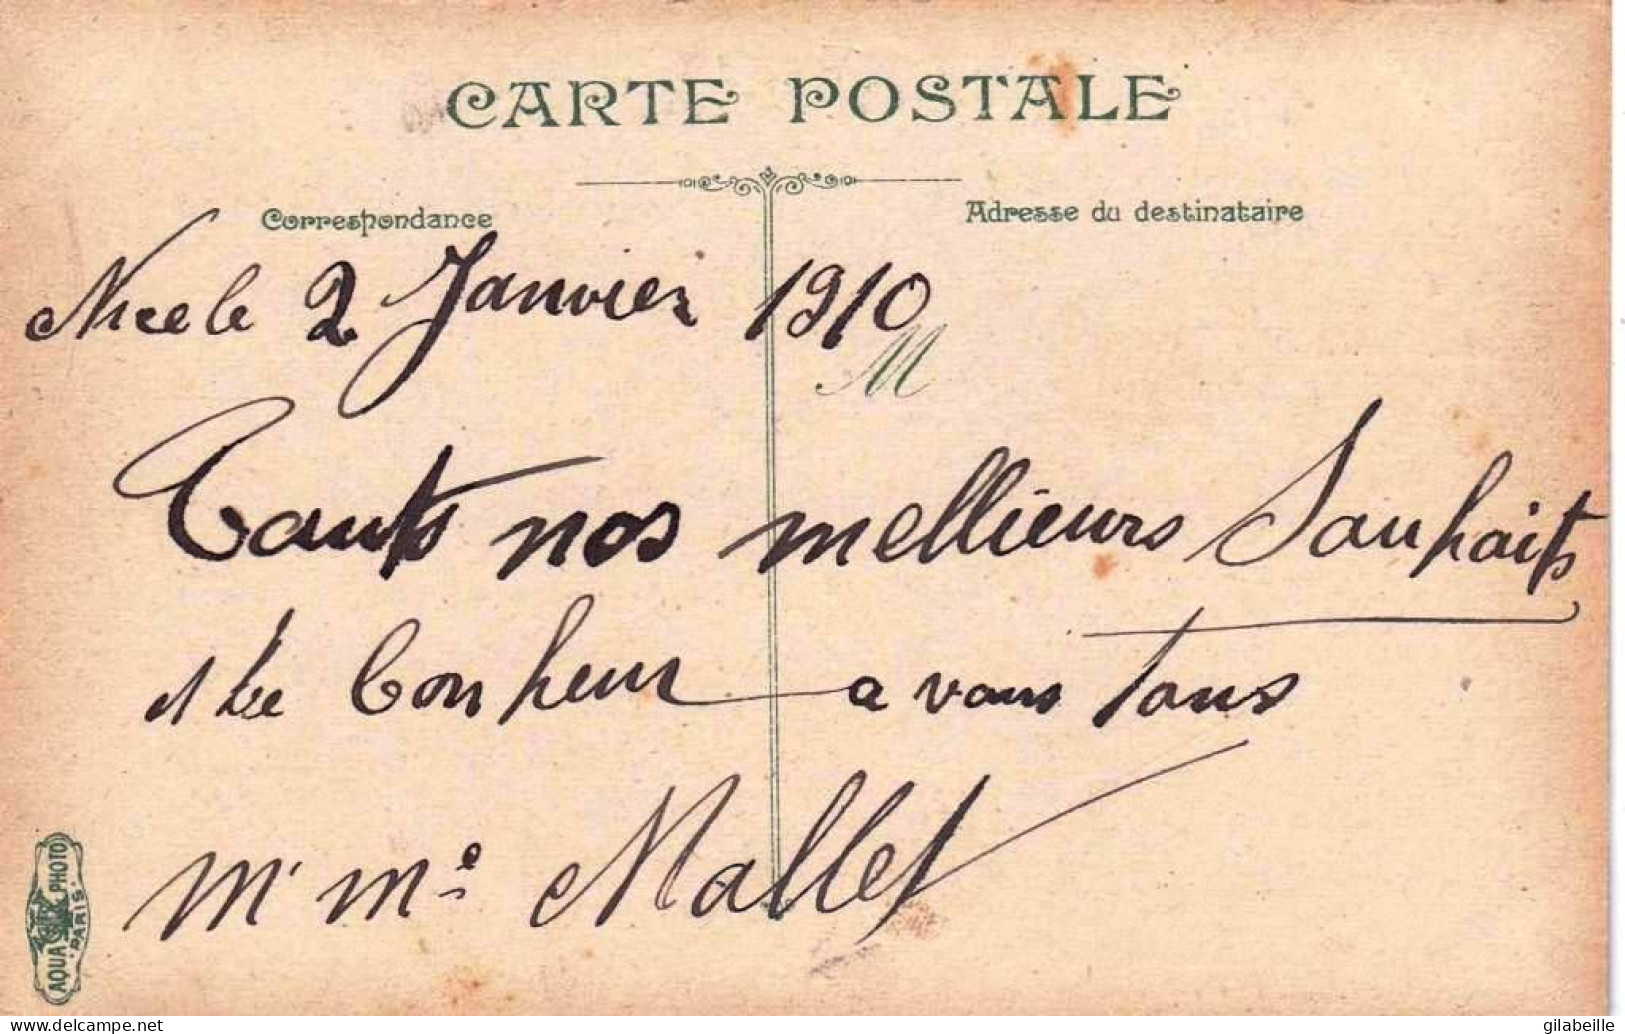 CARTE POSTALE
Correspondance
Adresse du destinataire
Nice le 2 Janvier 1910
M
Touts nos mellieurs Souhaits
de bonheur a vous tous
M' Mᵉ Mallet
AQUA PHOTO
PARIS
delcampe.net
gilabeille